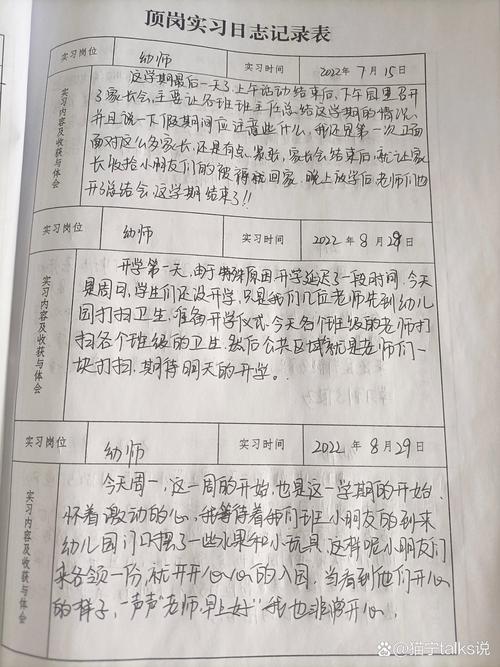 顶岗实习日志记录表
实习岗位 幼师 实习时间 2022年7月15日
实习内容及收获与体会
这学期最后一天了,上午活动结束后,下午园里召开
了家长会,主要让各班班主任总结这学期的情况,
并且说一下假期间应注意些什么,我还是第一次正面
面对这么多家长,还是有点紧张,家长会结束后,就让家
长收拾小朋友们的被褥就回家,晚上放学后,老师们也
开了总结会,这学期结束了!!
实习岗位 幼师 实习时间 2022年8月28日
实习内容及收获与体会
开学第一天,由于特殊原因开学延迟了一段时间,今天
是周日,学生们还没开学,只是我们几位老师先到幼儿
园打扫卫生,准备开学仪式,今天各个班级的老师打
扫各个班级的卫生,然后公共区域就是老师们一
块打扫,期待明天的开学。
实习岗位 幼师 实习时间 2022年8月29日
实习内容及收获与体会
今天周一,这一周的开始,也是这一学期的开始,
怀着激动的心,我等待着我们班小朋友的到来
幼儿园门口摆了一些水果和小玩具,这样呢小朋友们
来各领一份,就开开心心的入园,当看到他们开心
的样子,一声声“老师,早上好”我也非常开心。
@猫宁talks说